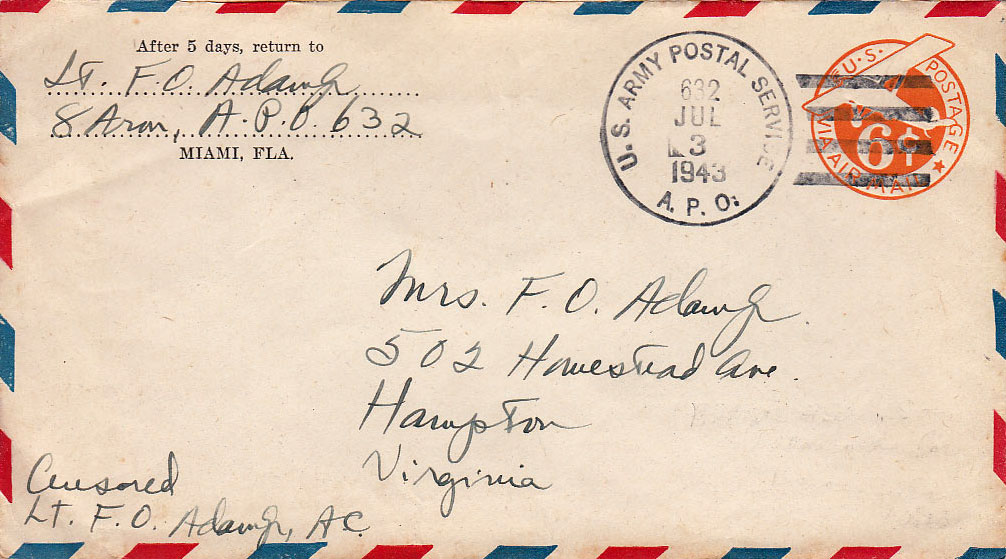 After 5 days, return to
Lt. F. O. Adams Jr
8 A.P.O 632
MIAMI, FLA.
U.S. ARMY POSTAL SERVICE
632
JUL
3
1943
A. P. O.
U.S. POSTAGE
6¢
VIA AIR MAIL
Mrs. F. O. Adams Jr.
502 Homestead Ave.
Hampton
Virginia
Censored
Lt. F. O. Adams Jr, AC.